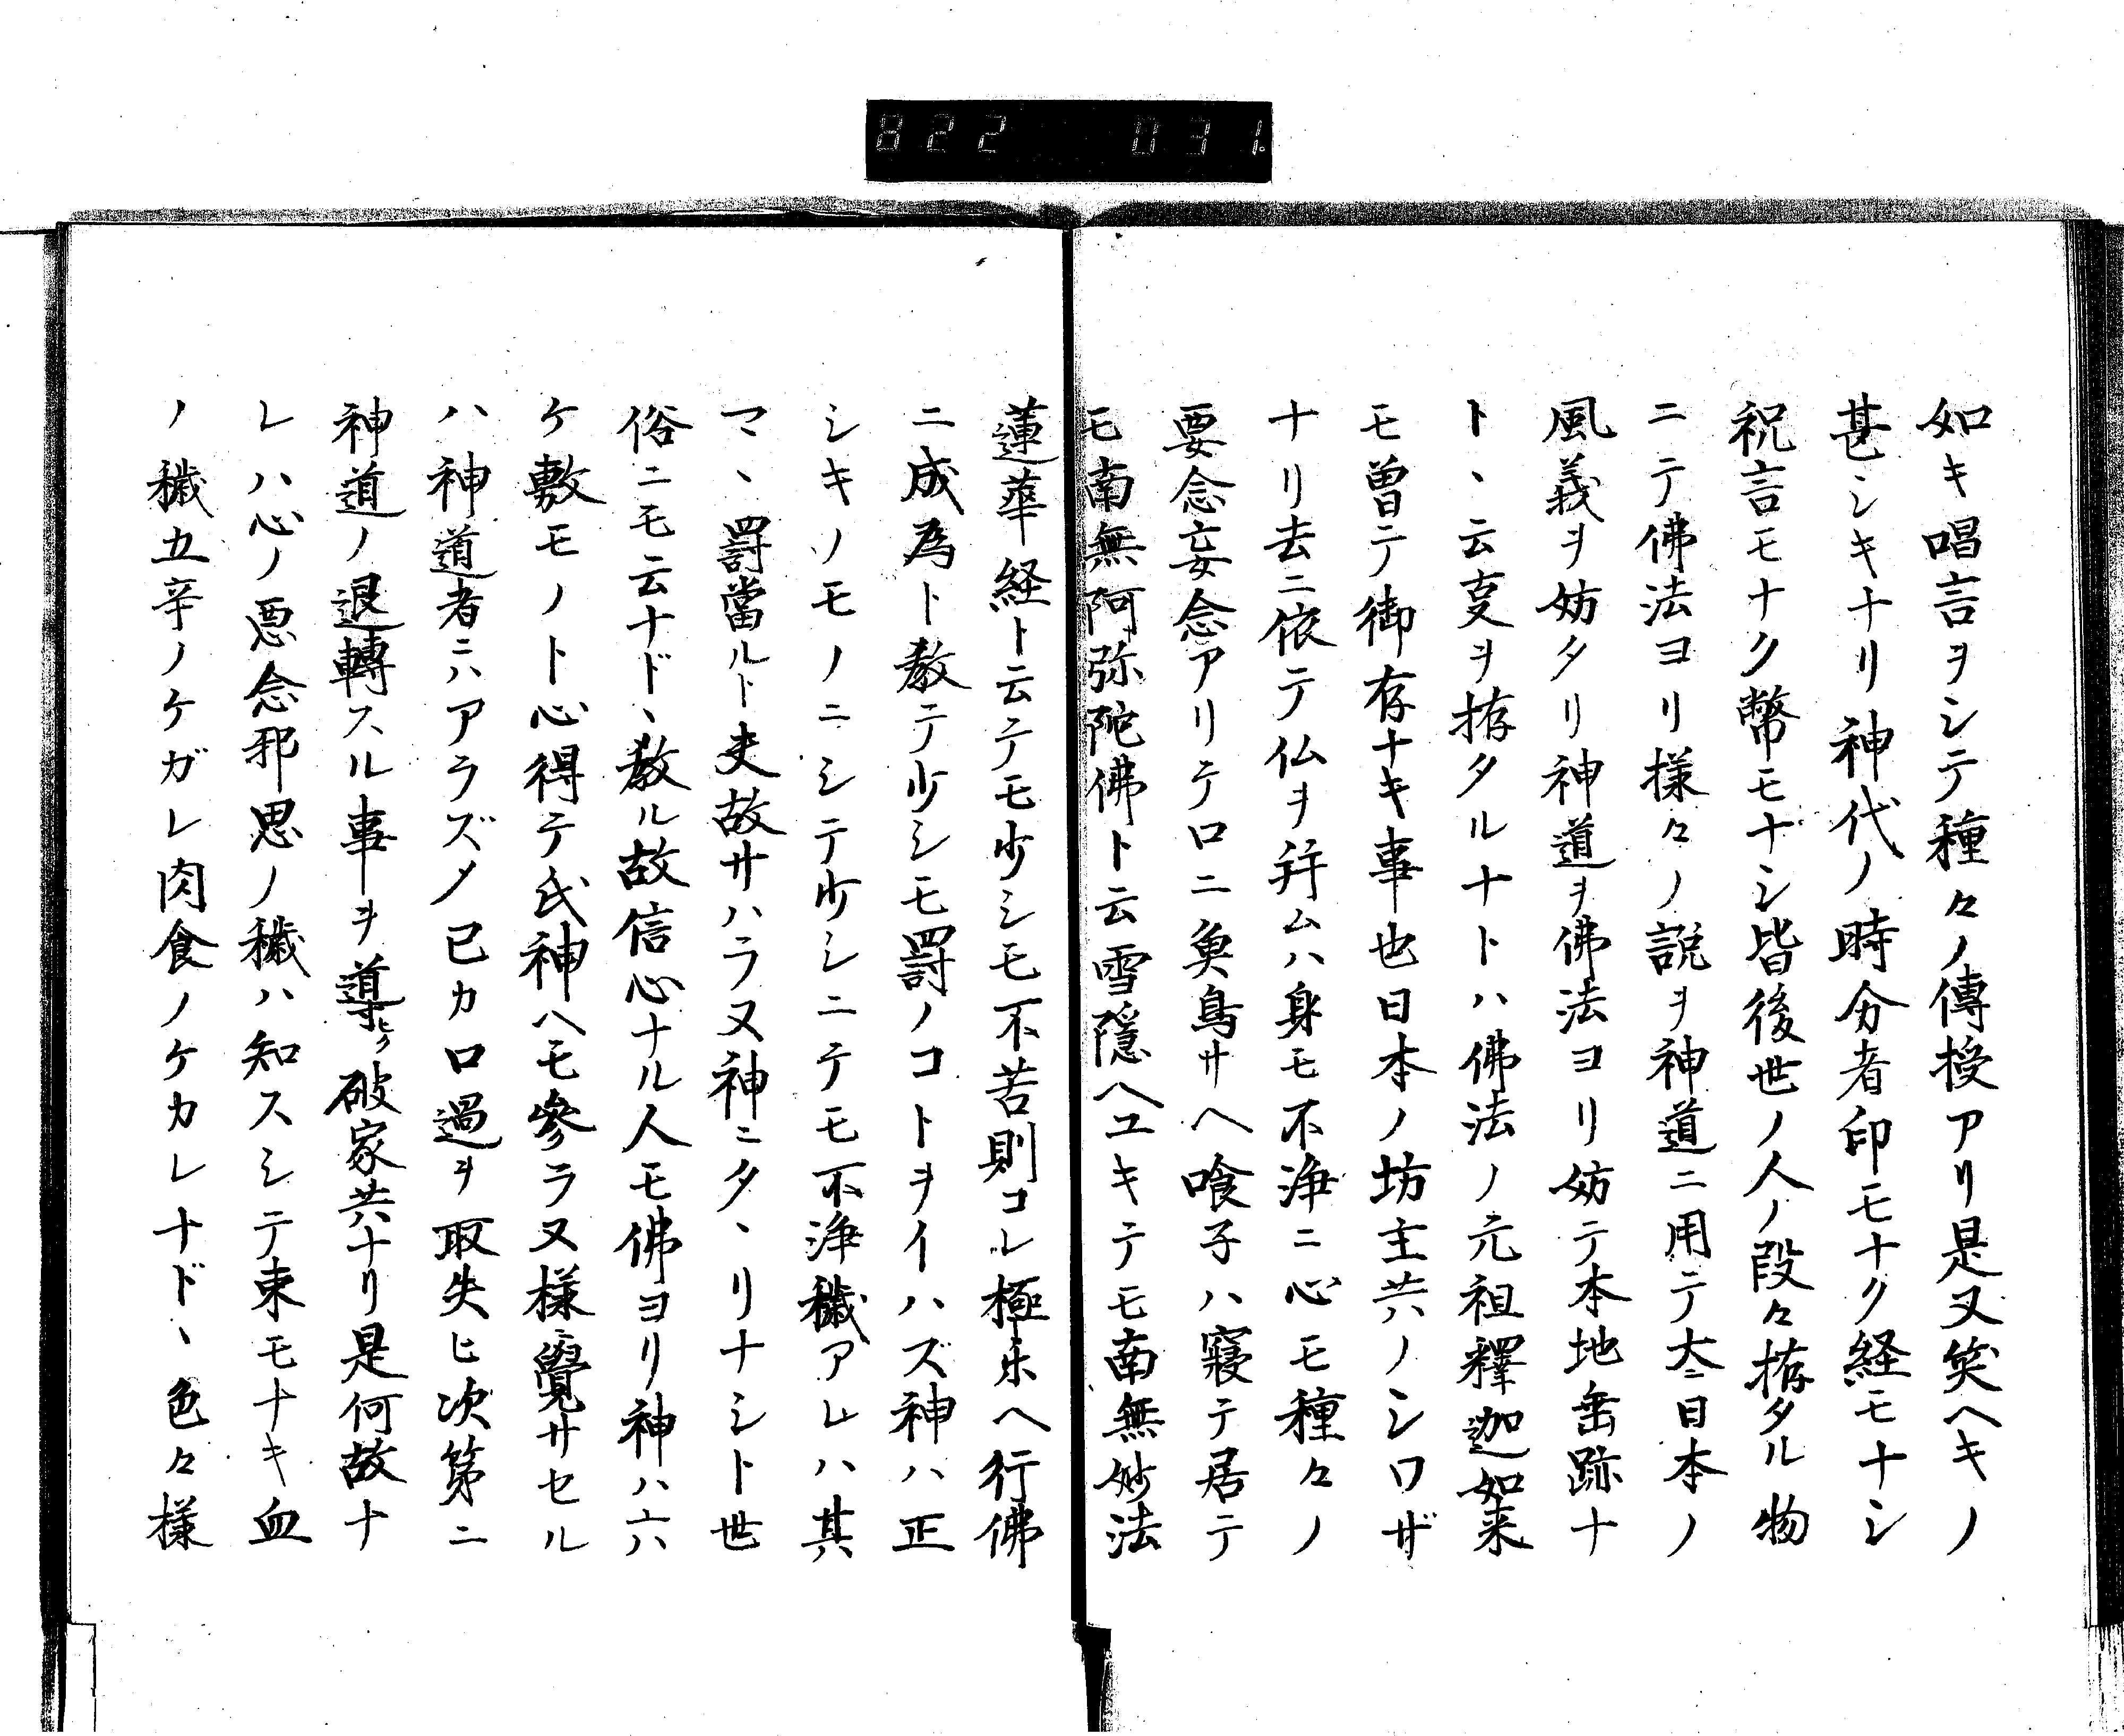 822 031.
如キ唱言ヲシテ種々ノ傳授アリ是又笑ヘキノ
甚シキナリ神代ノ時分者印モナク経モナシ
祝言モナク幣モナシ皆後世ノ人ノ段々拵タル物
ニテ佛法ヨリ様々ノ説ヲ神道ニ用テ大日本ノ
風義ヲ妨タリ神道ヲ佛法ヨリ妨テ本地垂跡ナ
ト、云叓ヲ拵タルナトハ佛法ノ元祖釋迦如来
モ曽テ御存ナキ事也日本ノ坊主共ノシワザ
ナリ去ニ依テ仏ヲ拝ムハ身モ不浄ニ心モ種々ノ
要念妄念アリテ口ニ魚鳥サヘ喰子ハ寝テ居テ
モ南無阿弥陀佛ト云雪隠ヘユキテモ南無妙法
蓮華経ト云テモ少シモ不苦則コレ極楽ヘ行佛
ニ成為ト教テ少シモ罰ノコトヲイハズ神ハ正
シキノモノニシテ少シニテモ不浄穢アレハ其
マ、罰當ルト夫故サハラヌ神ニタ、リナシト世
俗ニモ云ナド、教ル故信心ナル人モ佛ヨリ神ハ六
ケ敷モノト心得テ氏神ヘモ參ラヌ様ニ覺サセル
ハ神道者ニハアラズメ已カ口過ヲ取失ヒ次第ニ
神道ノ退轉スル事ヲ導ヒク破家共ナリ是何故ナ
レハ心ノ悪念邪思ノ穢ハ知スシテ東モナキ血
ノ穢五辛ノケガレ肉食ノケカレナド、色々様